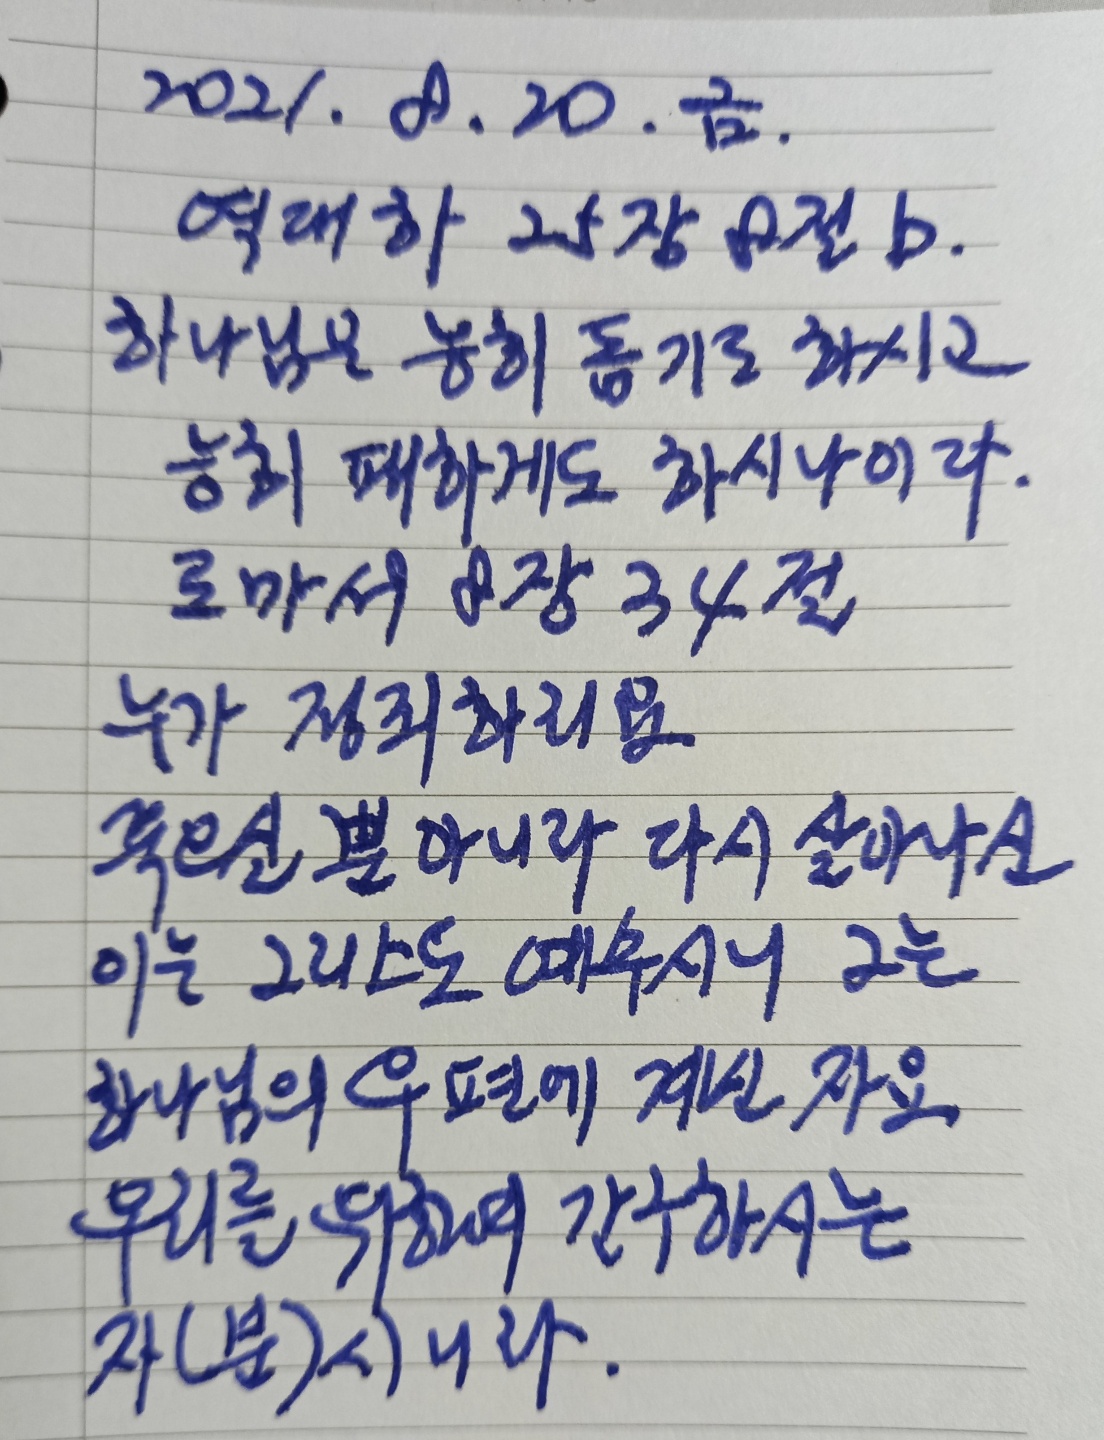 2021. 8. 20. 금.
역대하 25장 8절 b.
하나님은 능히 돕기도 하시고
능히 패하게도 하시나이라.
로마서 8장 34절
누가 정죄하리요
죽으실 뿐 아니라 다시 살아나신
이는 그리스도 예수시니 그는
하나님의 우편에 계신 자요
우리를 위하여 간구하시는
자(분)시니라.